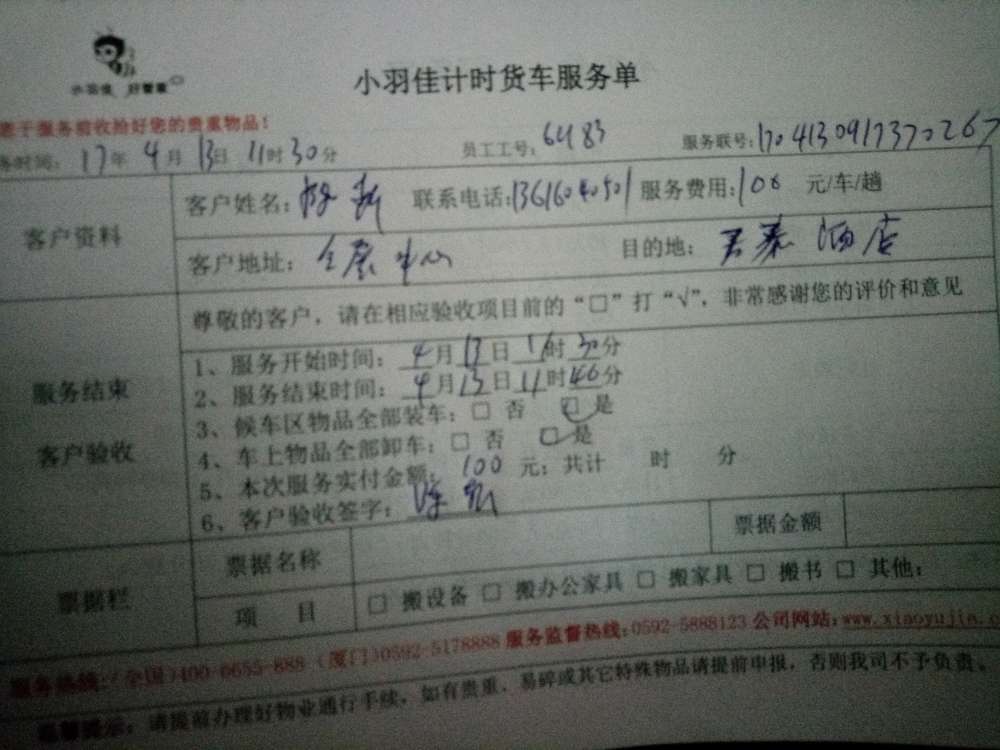 小羽佳 好管家
小羽佳计时货车服务单
于服务前收拾好您的贵重物品！
务时间：17年4月13日11时30分 员工工号：6483 服务联号：170413091737026
客户资料
客户姓名： 联系电话：13616040501 服务费用：100 元/车/趟
客户地址： 中心 目的地：君泰酒店
服务结束
客户验收
尊敬的客户，请在相应验收项目前的“□”打“√”，非常感谢您的评价和意见
1、服务开始时间：4月13日11时30分
2、服务结束时间：4月13日11时46分
3、候车区物品全部装车：□ 否 ☑ 是
4、车上物品全部卸车：□ 否 ☑ 是
5、本次服务实付金额：100 元；共计 时 分
6、客户验收签字：
票据栏
票据名称 票据金额
项 目 □ 搬设备 □ 搬办公家具 □ 搬家具 □ 搬书 □ 其他：
服务热线：（全国）400-6655-888（厦门）0592-5178888 服务监督热线：0592-5888123 公司网站：www.xiaoyujia.c
温馨提示：请提前办理好物业通行手续，如有贵重、易碎或其它特殊物品请提前申报，否则我司不予负责。